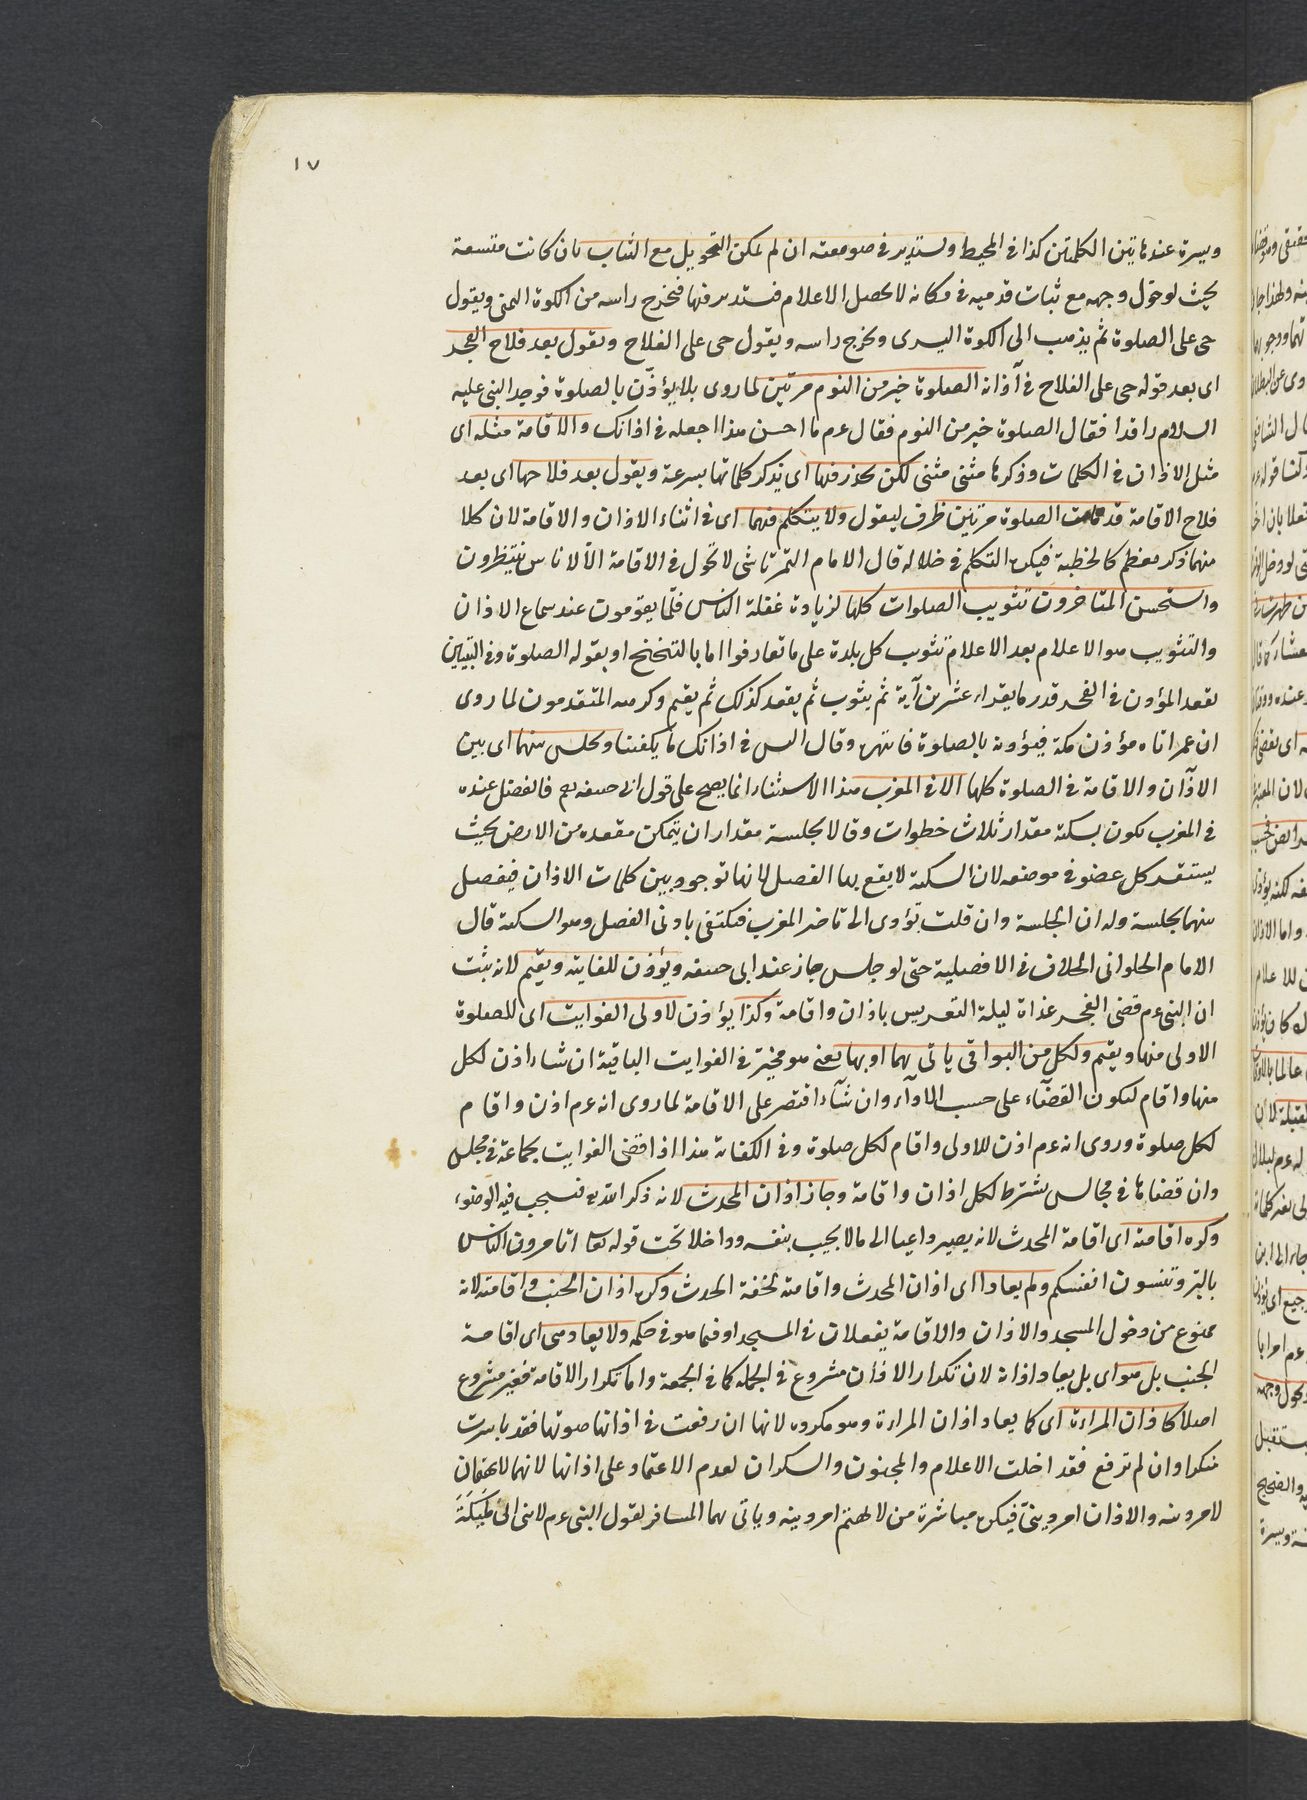 ١٧
ويسرة عند هاتين الكلمتين كذا في المحيط ويستدير في صومعته ان لم يمكن التحويل مع الثبات بان كانت متسعة
بحيث لو حول وجهه مع ثبات قدميه في مكانه لا يحصل الاعلام فيستدير فيها فيخرج راسه من الكوة اليمنى ويقول
حى على الصلوة ثم يذهب الى الكوة اليسرى ويخرج راسه ويقول حى على الفلاح ويقول بعد فلاح الفجر
اى بعد قوله حى على الفلاح في آذانه الصلوة خير من النوم مرتين لما روى بلا يؤذن بالصلوة فوجد النبى عليه
السلام راقدا فقال الصلوة خير من النوم فقال عم ما احسن هذا اجعله في اذانك والاقامة مثله اى
مثل الاذان في الكلمات وذكرها مثنى مثنى لكن يحذر فيها اى يذكر كلماتها بسرعة ويقول بعد فلاحها اى بعد
فلاح الاقامة قد قامت الصلوة مرتين ظرف ليقول ولا يتكلم فيهما اى في اثناء الاذان والاقامة لان كلا
منهما ذكر معظم كالخطبة فيكره التكلم في خلاله قال الامام التمرتاشى لا يحول في الاقامة الا لاناس ينتظرون
واستحسن المتاخرون تثويب الصلوات كلها لزيادة غفلة الناس فلما يقومون عند سماع الاذان
والتثويب هو الاعلام بعد الاعلام تثويب كل بلدة على ما تعارفوا اما بالتنحنح او بقوله الصلوة وفي التبيين
يقعد المؤذن في الفجر قدر ما يقراء عشرين آية ثم يثوب ثم يقعد كذلك ثم يقيم وكرهه المتقدمون لما روى
ان عمر اتاه مؤذن مكة فيؤذنه بالصلوة فانتهره وقال اليس في اذانك ما يكفينا ويجلس بينهما اى بين
الاذان والاقامة في الصلوة كلها الا في المغرب هذا الاستثناء انما يصح على قول ابى حنيفه رحم فالفضل عنده
في المغرب يكون بسكتة مقدار ثلاث خطوات وقالا بجلسة مقدار ان يتمكن مقعده من الارض بحيث
يستقر كل عضو في موضعه لان السكتة لا يقع بها الفصل لانها توجد بين كلمات الاذان فيفصل
بينهما بجلسة وله ان الجلسة وان قلت تؤدى الى تاخير المغرب فيكتفى بادنى الفصل وهو السكتة قال
الامام الحلوانى الخلاف في الافضلية حتى لو جلس جاز عند ابى حنيفه ويؤذن للفايته ويقيم لانه ثبت
ان النبى عم قضى الفجر غداة ليلة التعريس باذان واقامة وكذا يؤذن لاولى الفوايت اى للصلوة
الاولى منها ويقيم ولكل من البواقى ياتى بهما او بها يعنى هو مخير في الفوايت الباقية ان شاء اذن لكل
منها واقام ليكون القضآء على حسب الادآء وان شآء اقتصر على الاقامة لما روى انه عم اذن واقام
لكل صلوة وروى انه عم اذن للاولى واقام لكل صلوة وفي الكفايه هذا اذا قضى الفوايت بجماعة في مجلس
وان قضاها في مجالس يشترط لكل اذان واقامة وجاز اذان المحدث لانه ذكر الله تع فيستحب فيه الوضوء
وكره اقامته اى اقامة المحدث لانه يصير داعيا الى ما لا يجيب بنفسه وداخلا تحت قوله تعا اتامرون الناس
بالبر وتنسون انفسكم ولم يعادا اى اذان المحدث واقامته لخفة الحدث وكره اذان الجنب واقامته لانه
ممنوع من دخول المسجد والاذان والاقامة يفعلان في المسجد او فيما هو في حكمه ولا يعاد هى اى اقامة
الجنب بل هو اى بل يعاد اذانه لان تكرار الاذان مشروع في الجملة كما في الجمعة واما تكرار الاقامة فغير مشروع
اصلا كاذان المراءة اى كما يعاد اذان المراءة وهو مكروه لانها ان رفعت في اذانها صوتها فقد باشرت
منكرا وان لم ترفع فقد اخلت الاعلام والمجنون والسكران لعدم الاعتماد على اذانها لانهما لا يهتمان
لامر دينه والاذان امر دينى فيكره مباشرة من لا يهتم امر دينه وياتى بهما المسافر لقول النبى عم لابنى ابى مليكة